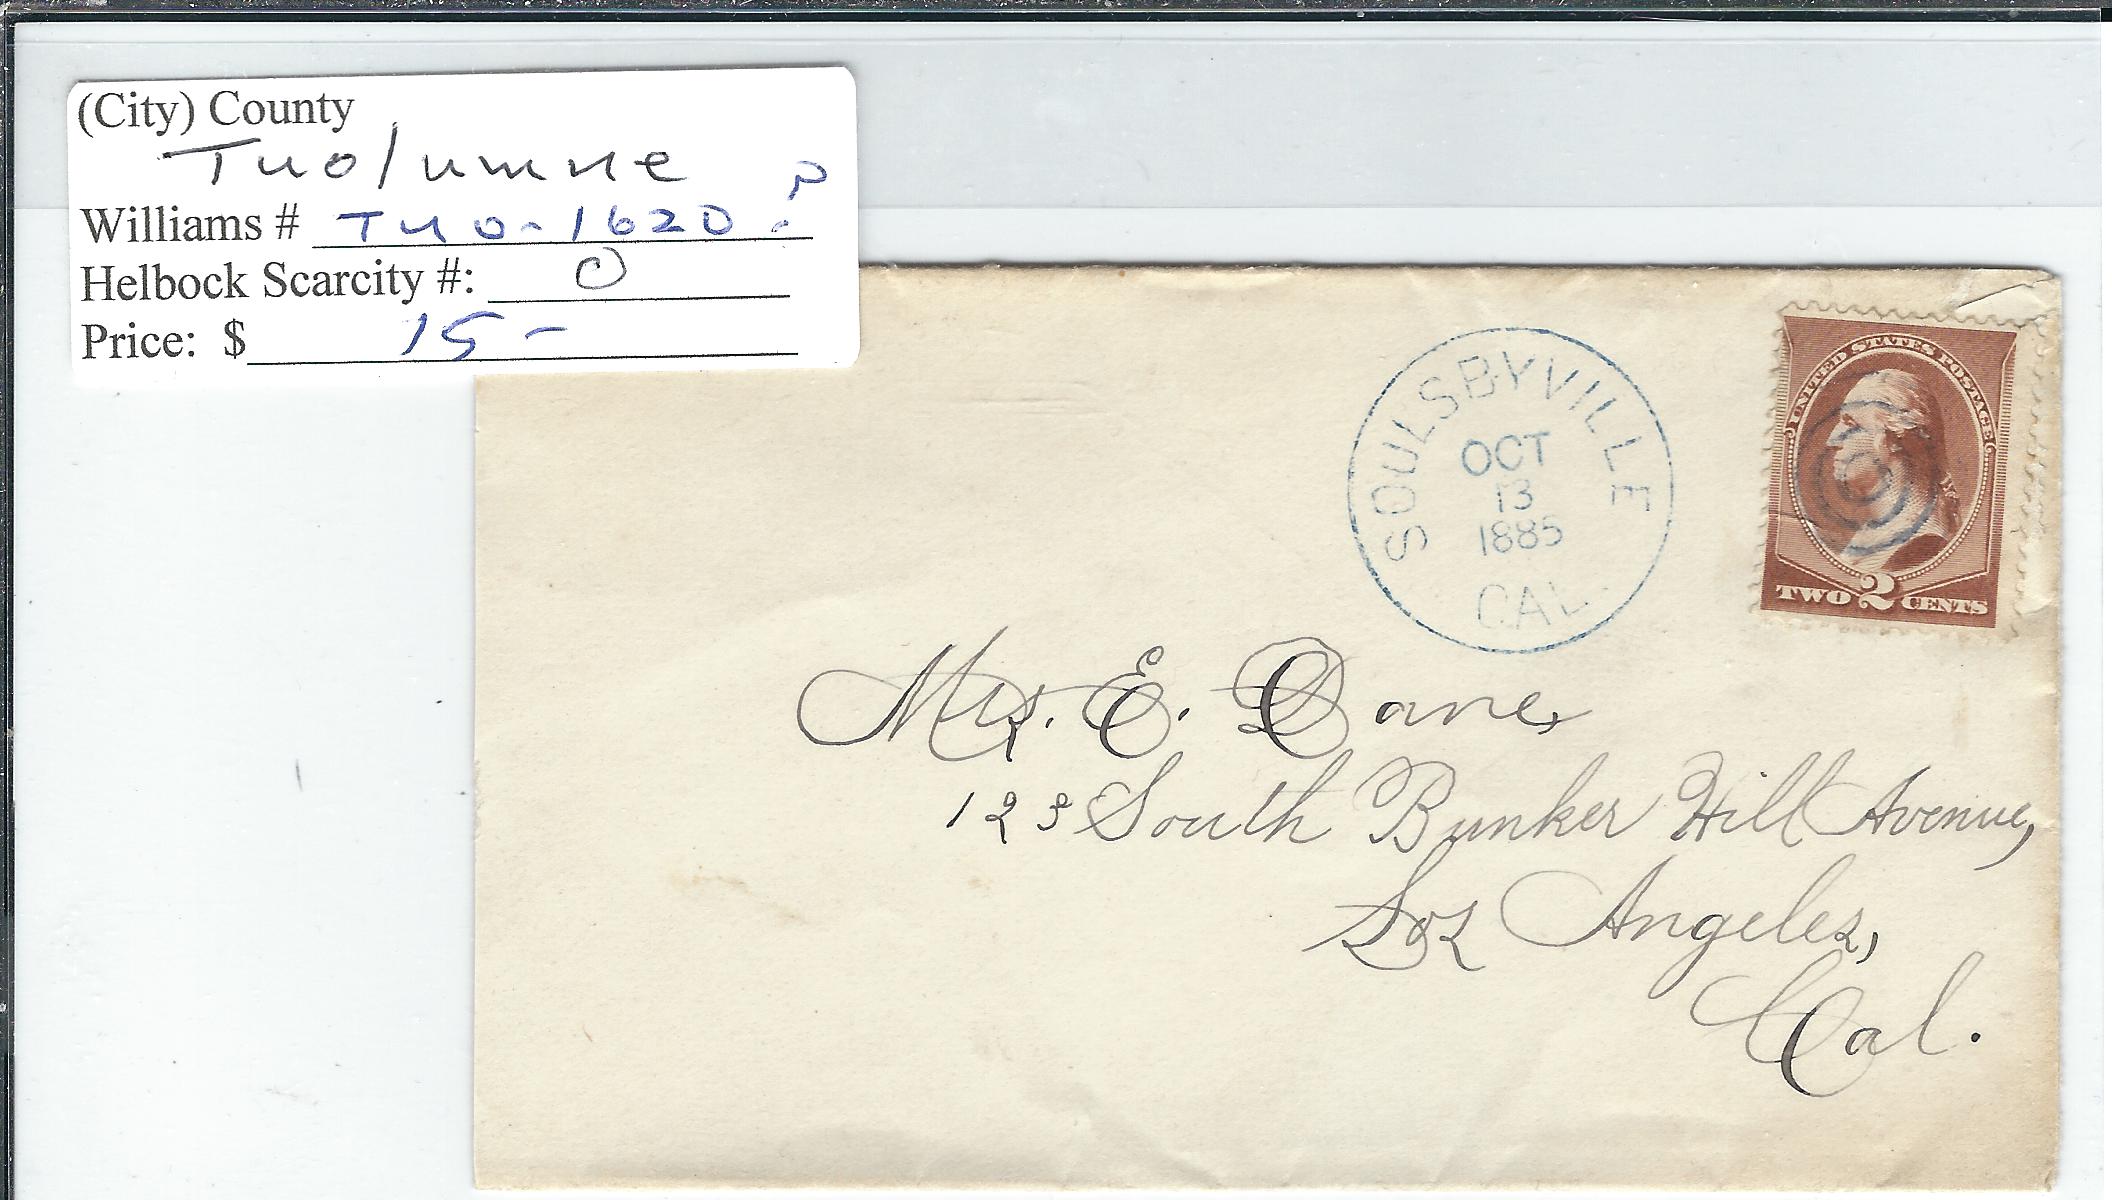 (City) County
Tuolumne
Williams # TUO-1620?
Helbock Scarcity #: 0
Price: $ 15-
SOULSBYVILLE
OCT
13
1885
CAL.
UNITED STATES POSTAGE
TWO 2 CENTS
Mrs. E. Dane,
123 South Bunker Hill Avenue,
Los Angeles,
Cal.